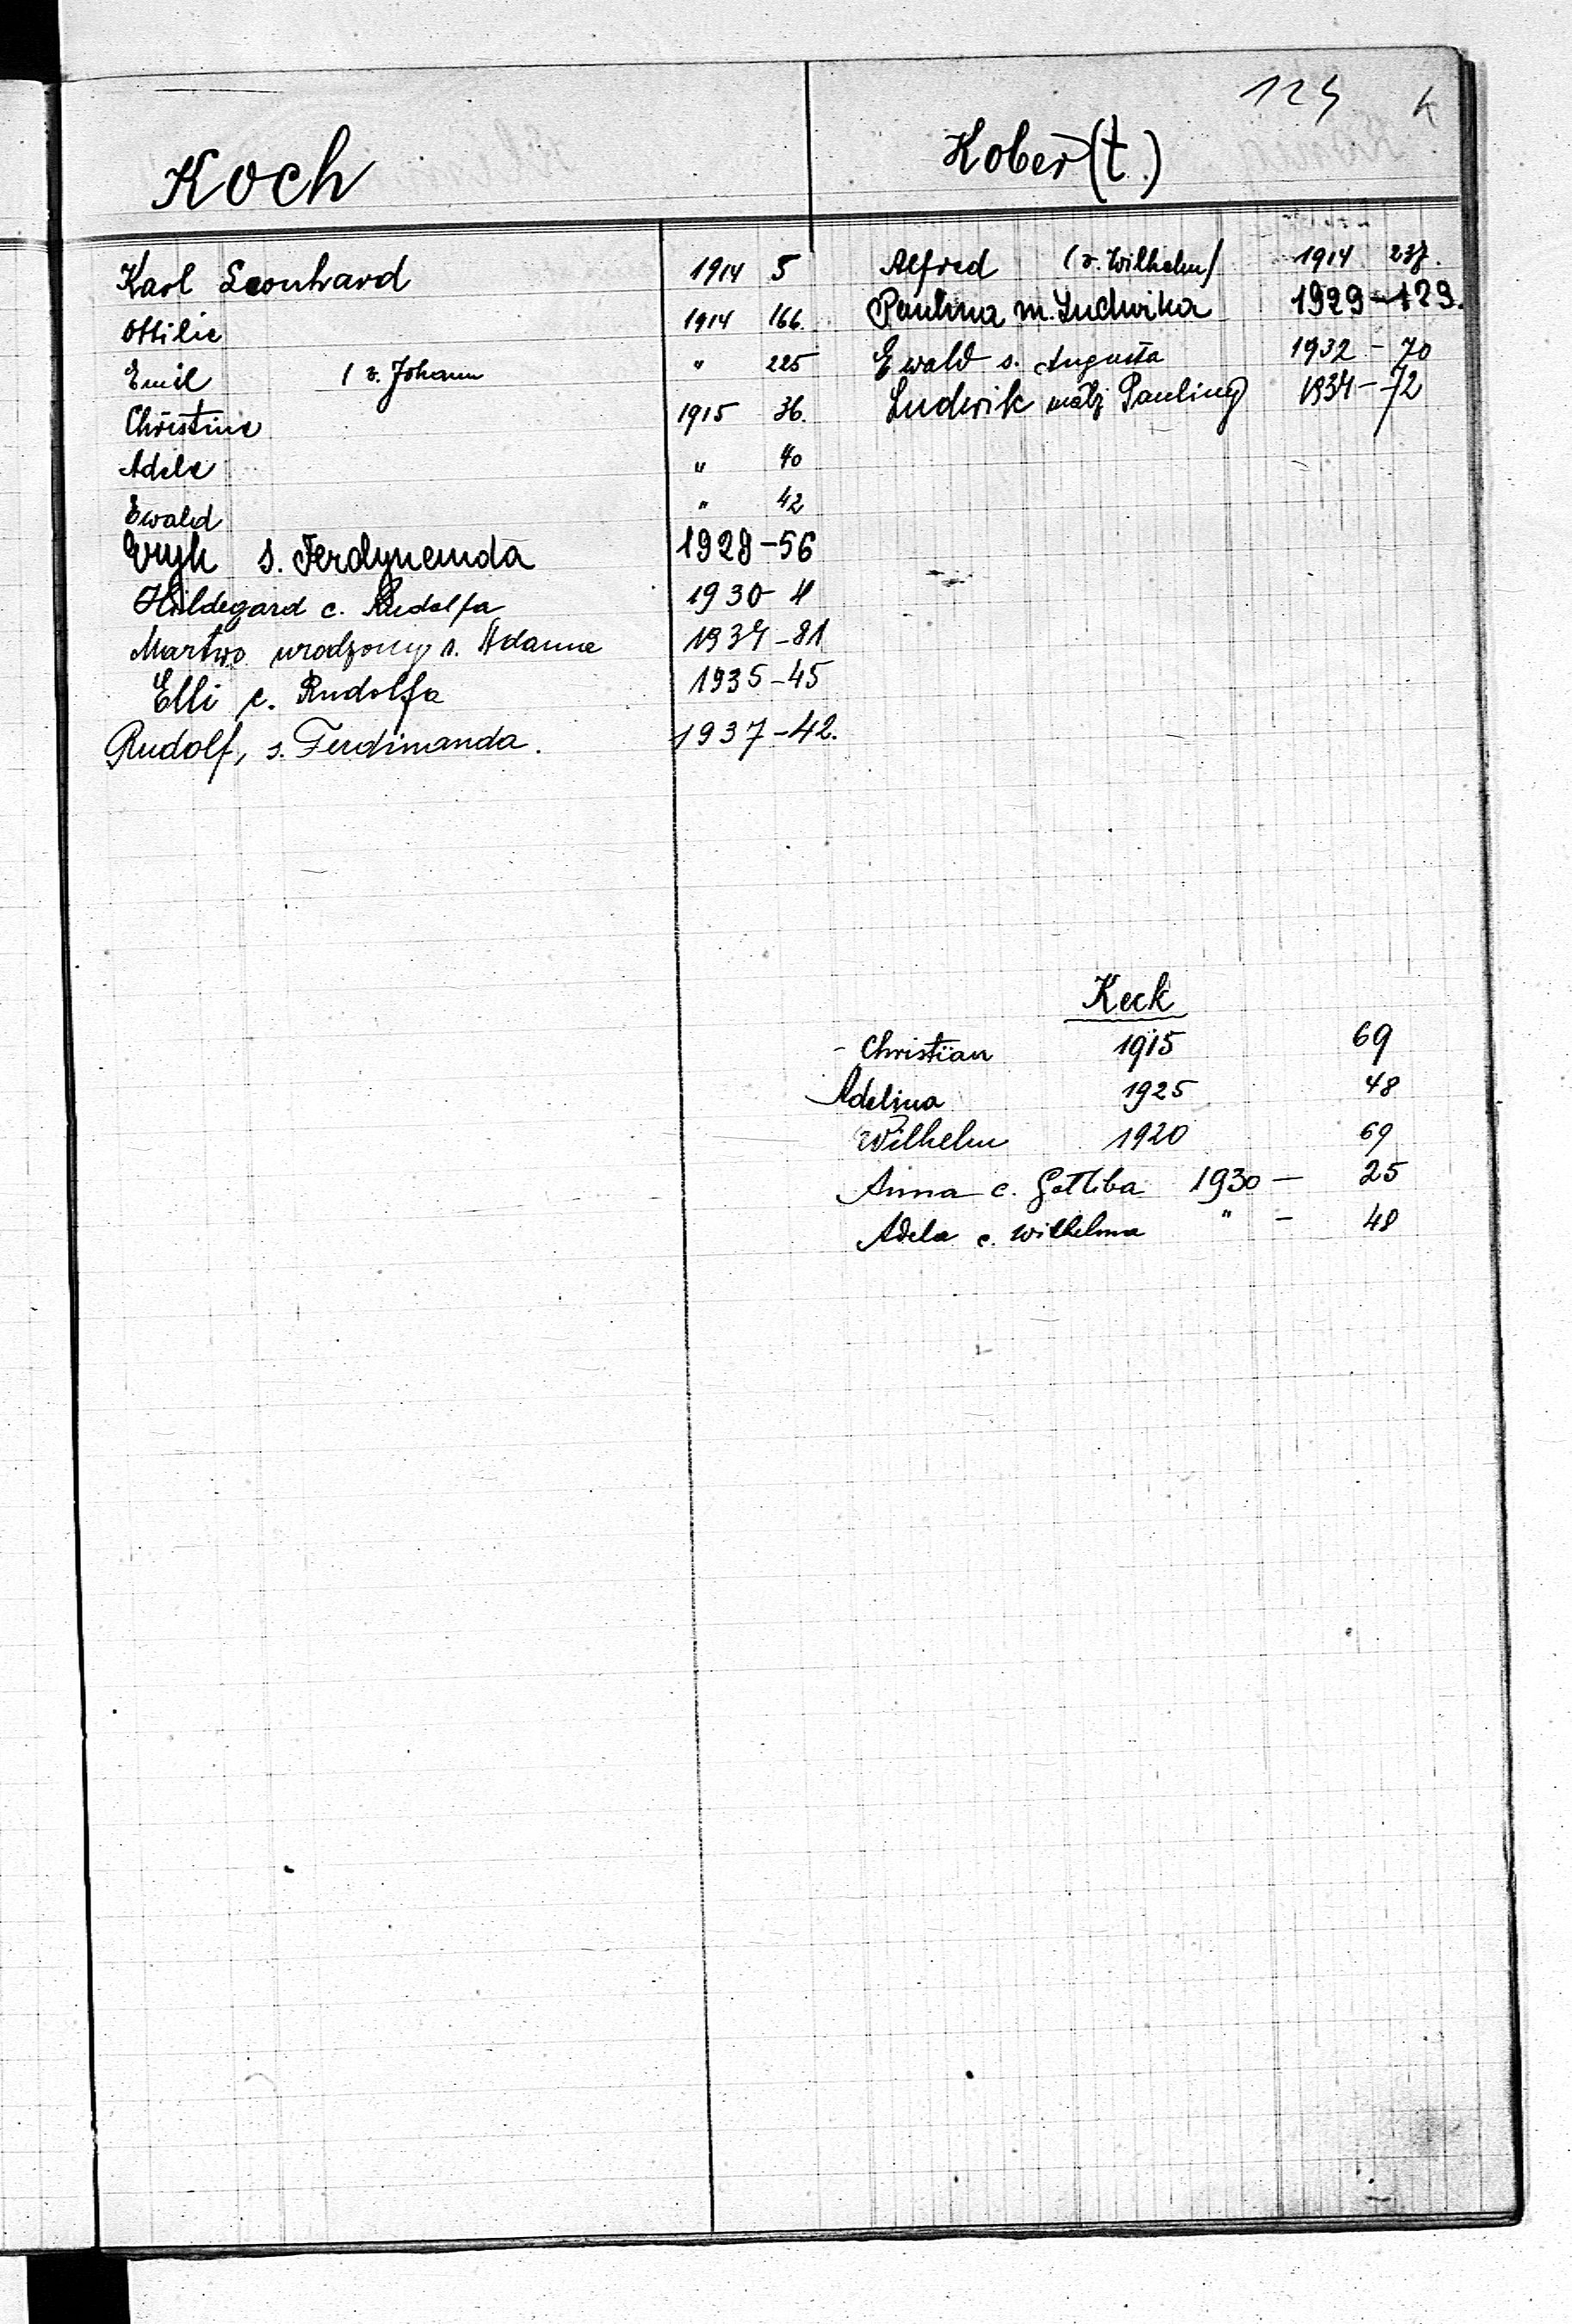 124 K
Koch
Karl Leonhard 1914 5
Ottilie 1914 166.
Emil (v. Johann " 225
Christine 1915 36.
Adele " 40
Ewald " 42
Eryk s. Ferdynenda 1928-56
Hildegard c. Rudolfa 1930-4
Martwo urodzony s. Adama 1934-81
Elli c. Rudolfa 1935-45
Rudolf, s. Ferdinanda. 1937-42.
Kober(t.)
Alfred (v. Wilhelm) 1914 237.
Paulina m. Ludwika 1929-129.
Ewald s. Augusta 1932-70
Ludwik mąż Pauliny 1934-72
Keck
- Christian 1915 69
Adelina 1925 48
Wilhelm 1920 69
Anna c. Gottliba 1930 - 25
Adela c. Wilhelma " - 48